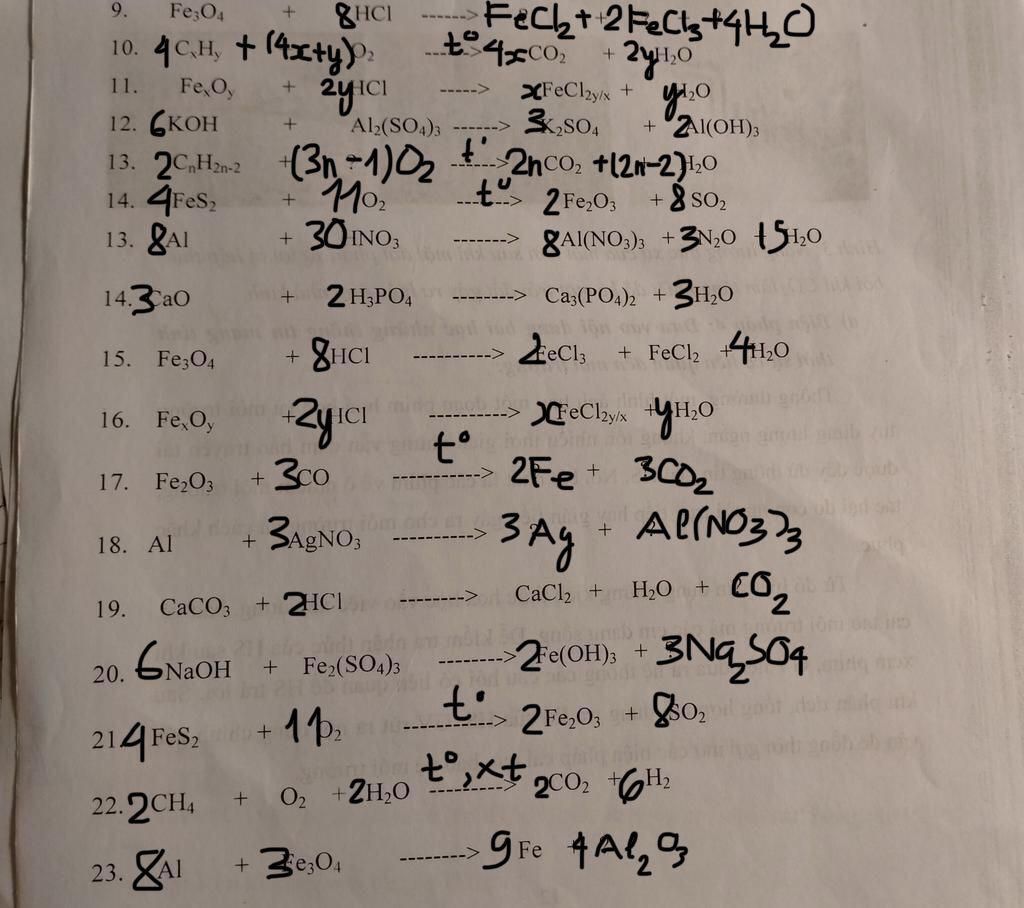 9. Fe₃O₄ + 8HCl ------> FeCl₂ + 2FeCl₃ + 4H₂O
10. 4CₓHᵧ + (4x+y)O₂ ---t°-> 4xCO₂ + 2yH₂O
11. FeₓOᵧ + 2yHCl -----> xFeCl₂y/x + yH₂O
12. 6KOH + Al₂(SO₄)₃ ------> 3K₂SO₄ + 2Al(OH)₃
13. 2CₙH₂ₙ₋₂ + (3n-1)O₂ --t°---> 2nCO₂ + (2n-2)H₂O
14. 4FeS₂ + 11O₂ ---t°--> 2Fe₂O₃ + 8SO₂
13. 8Al + 30HNO₃ -------> 8Al(NO₃)₃ + 3N₂O + 15H₂O
14. 3CaO + 2H₃PO₄ --------> Ca₃(PO₄)₂ + 3H₂O
15. Fe₃O₄ + 8HCl ----------> 2FeCl₃ + FeCl₂ + 4H₂O
16. FeₓOᵧ + 2yHCl ----------> xFeCl₂y/x + yH₂O
17. Fe₂O₃ + 3CO -----t°-----> 2Fe + 3CO₂
18. Al + 3AgNO₃ ----------> 3Ag + Al(NO₃)₃
19. CaCO₃ + 2HCl --------> CaCl₂ + H₂O + CO₂
20. 6NaOH + Fe₂(SO₄)₃ --------> 2Fe(OH)₃ + 3Na₂SO₄
21 4FeS₂ + 11O₂ -----t°-----> 2Fe₂O₃ + 8SO₂
22. 2CH₄ + O₂ + 2H₂O ---t°,xt---> 2CO₂ + 6H₂
23. 8Al + 3Fe₃O₄ --------> 9Fe 4Al₂O₃